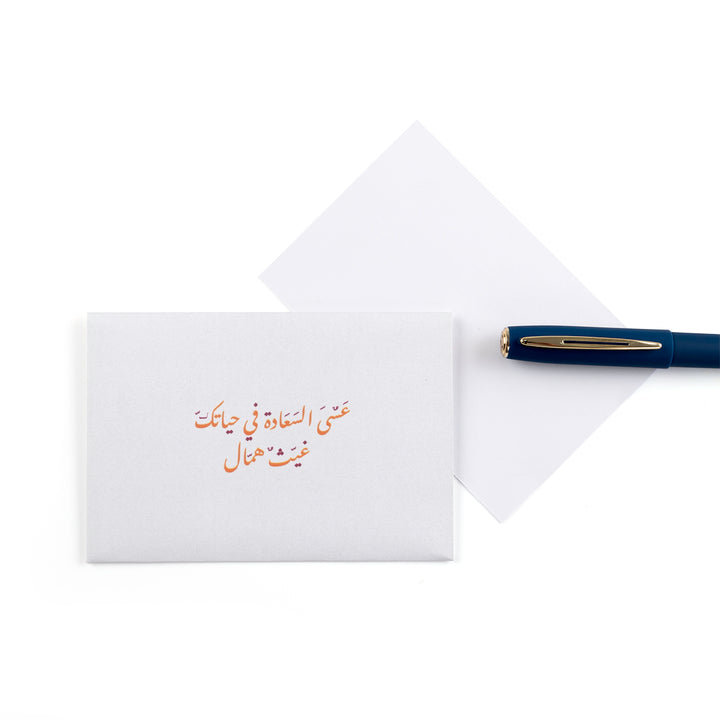 عَسْىَ السَعَادة في حياتكّ
غيّثٌ همّال